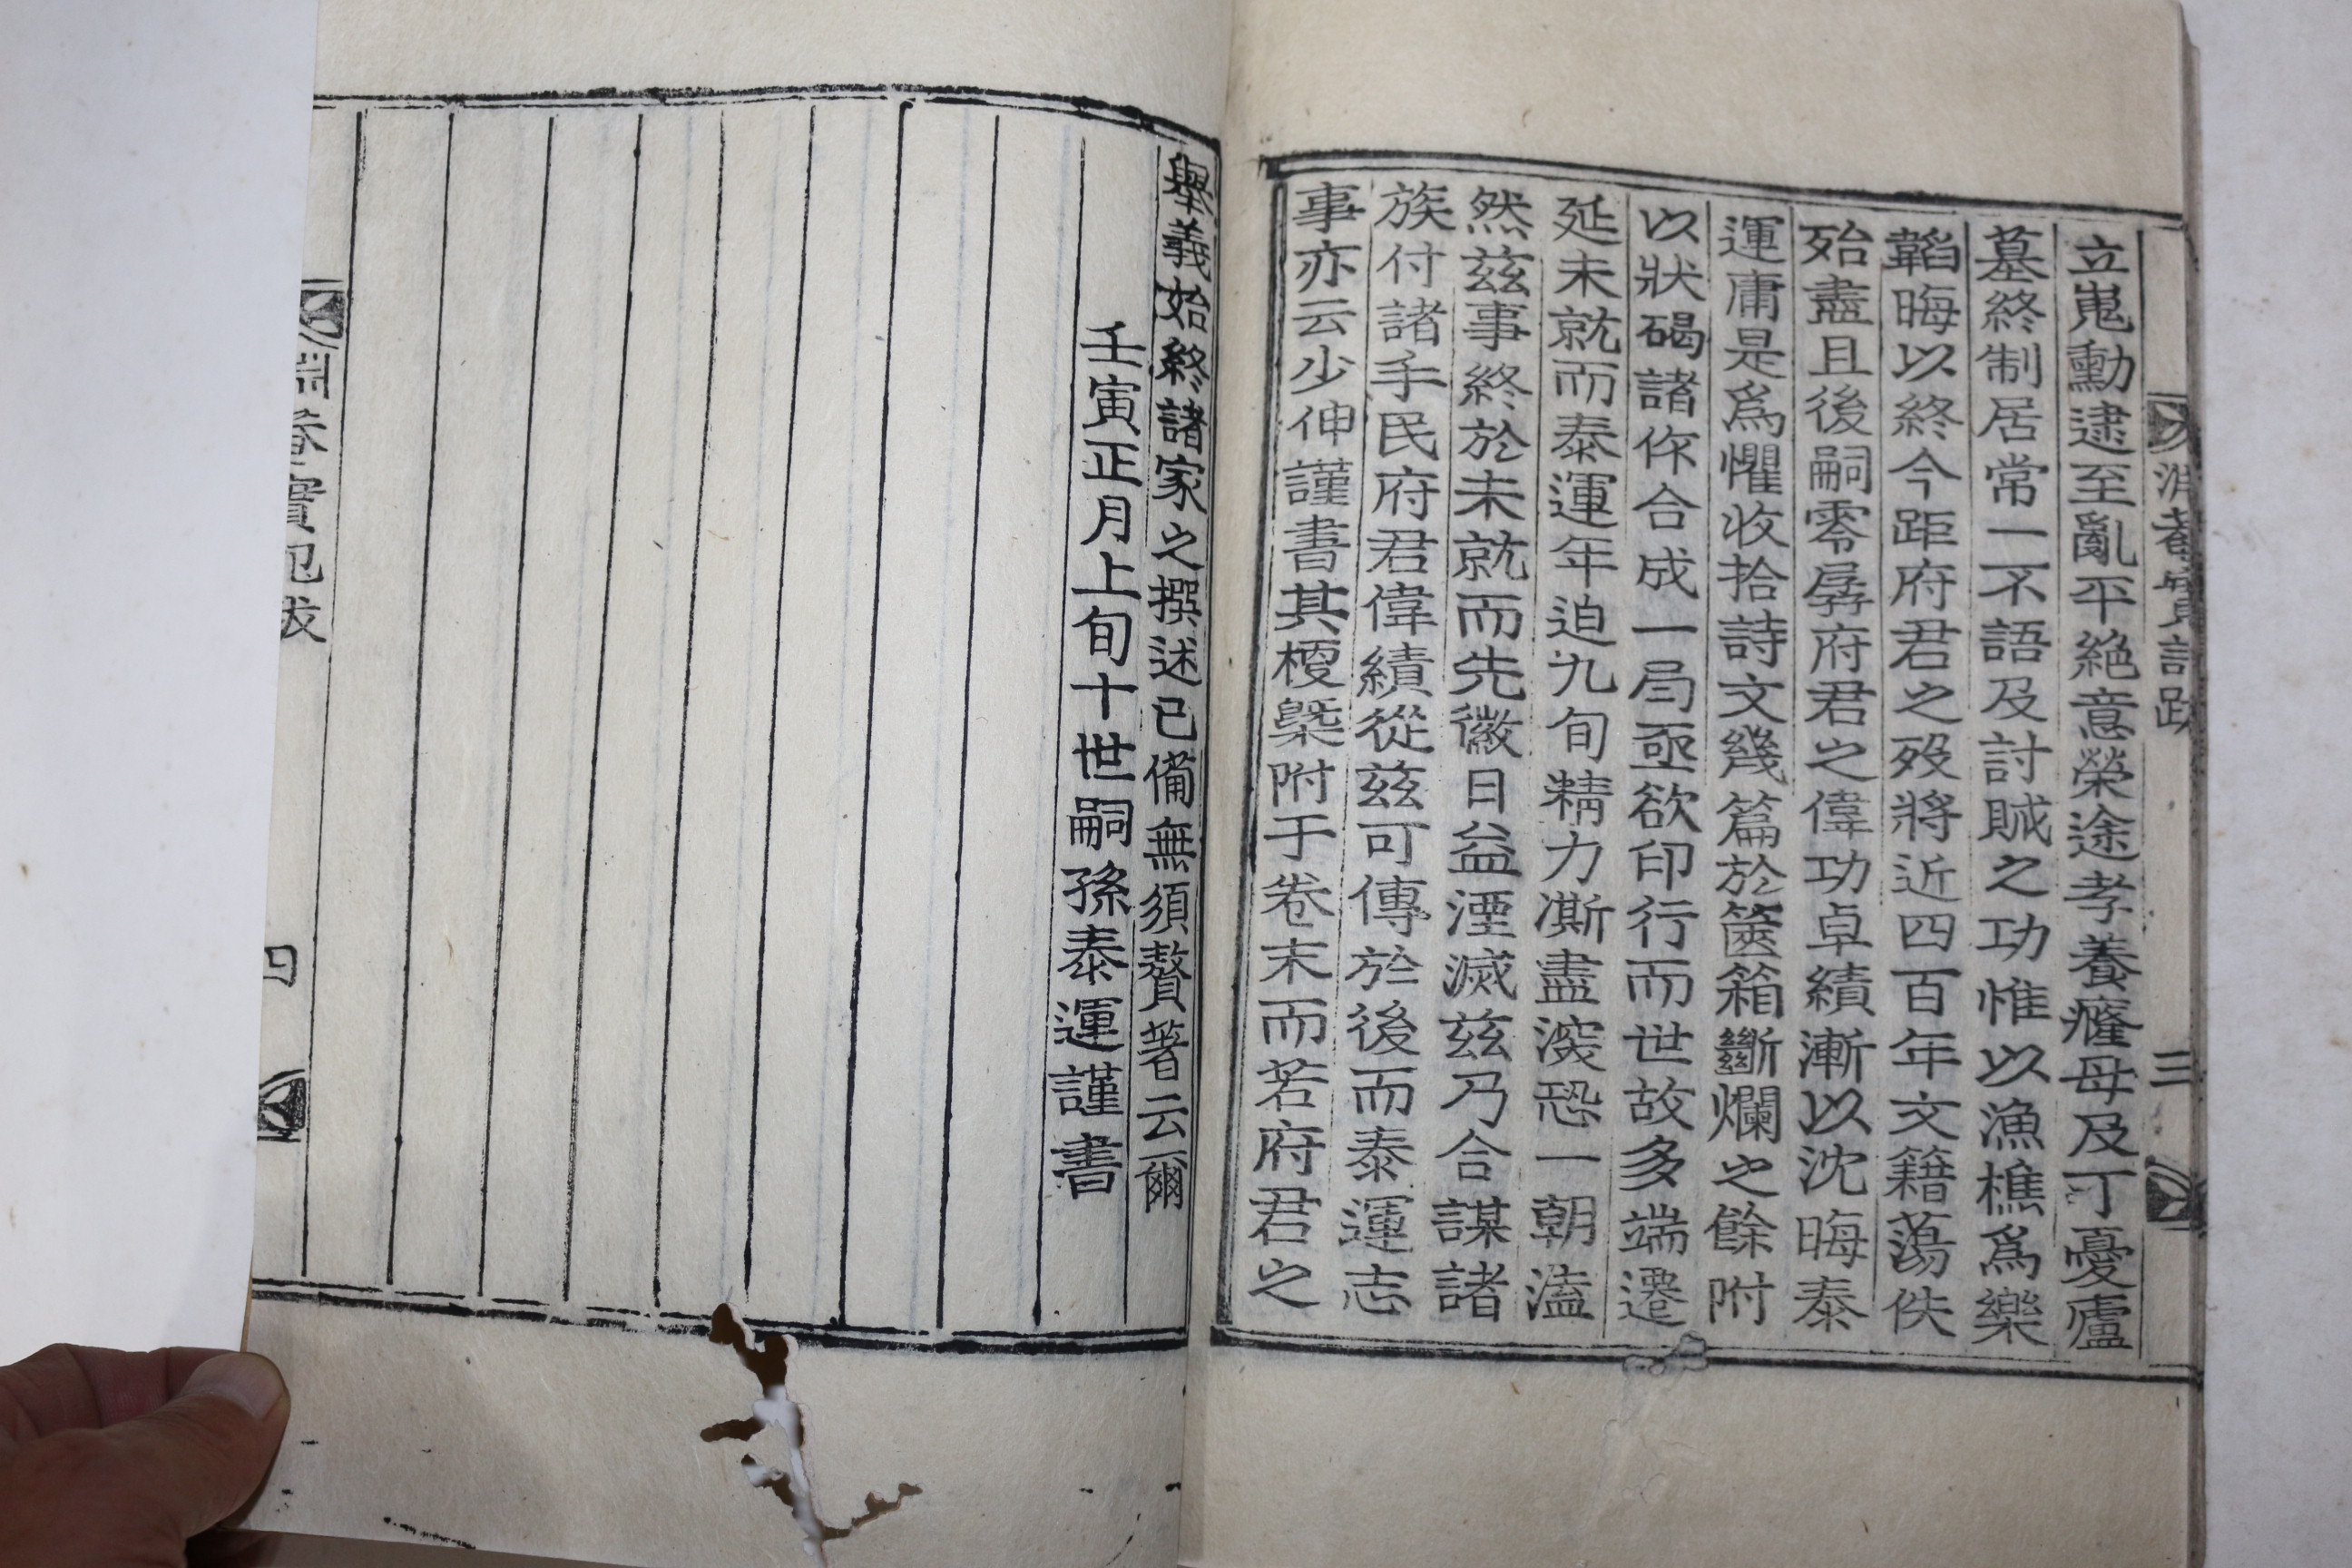 立嵬勳逮至亂平絶意榮途孝養癃母及丁憂廬
墓終制居常一不語及討賊之功惟以漁樵爲樂
韜晦以終今距府君之歿將近四百年文籍蕩佚
殆盡且後嗣零孱府君之偉功卓績漸以沈晦泰
運庸是爲懼收拾詩文幾篇於篋箱斷爛之餘附
以狀碣諸作合成一局亟欲印行而世故多端遷
延未就而泰運年迫九旬精力澌盡深恐一朝溘
然玆事終於未就而先徽日益湮滅玆乃合謀諸
族付諸手民府君偉績從玆可傳於後而泰運志
事亦云少伸謹書其榎槩附于卷末而若府君之
擧義始終諸家之撰述已備無須贅著云爾
壬寅正月上旬十世嗣孫泰運謹書
三
實記跋
四